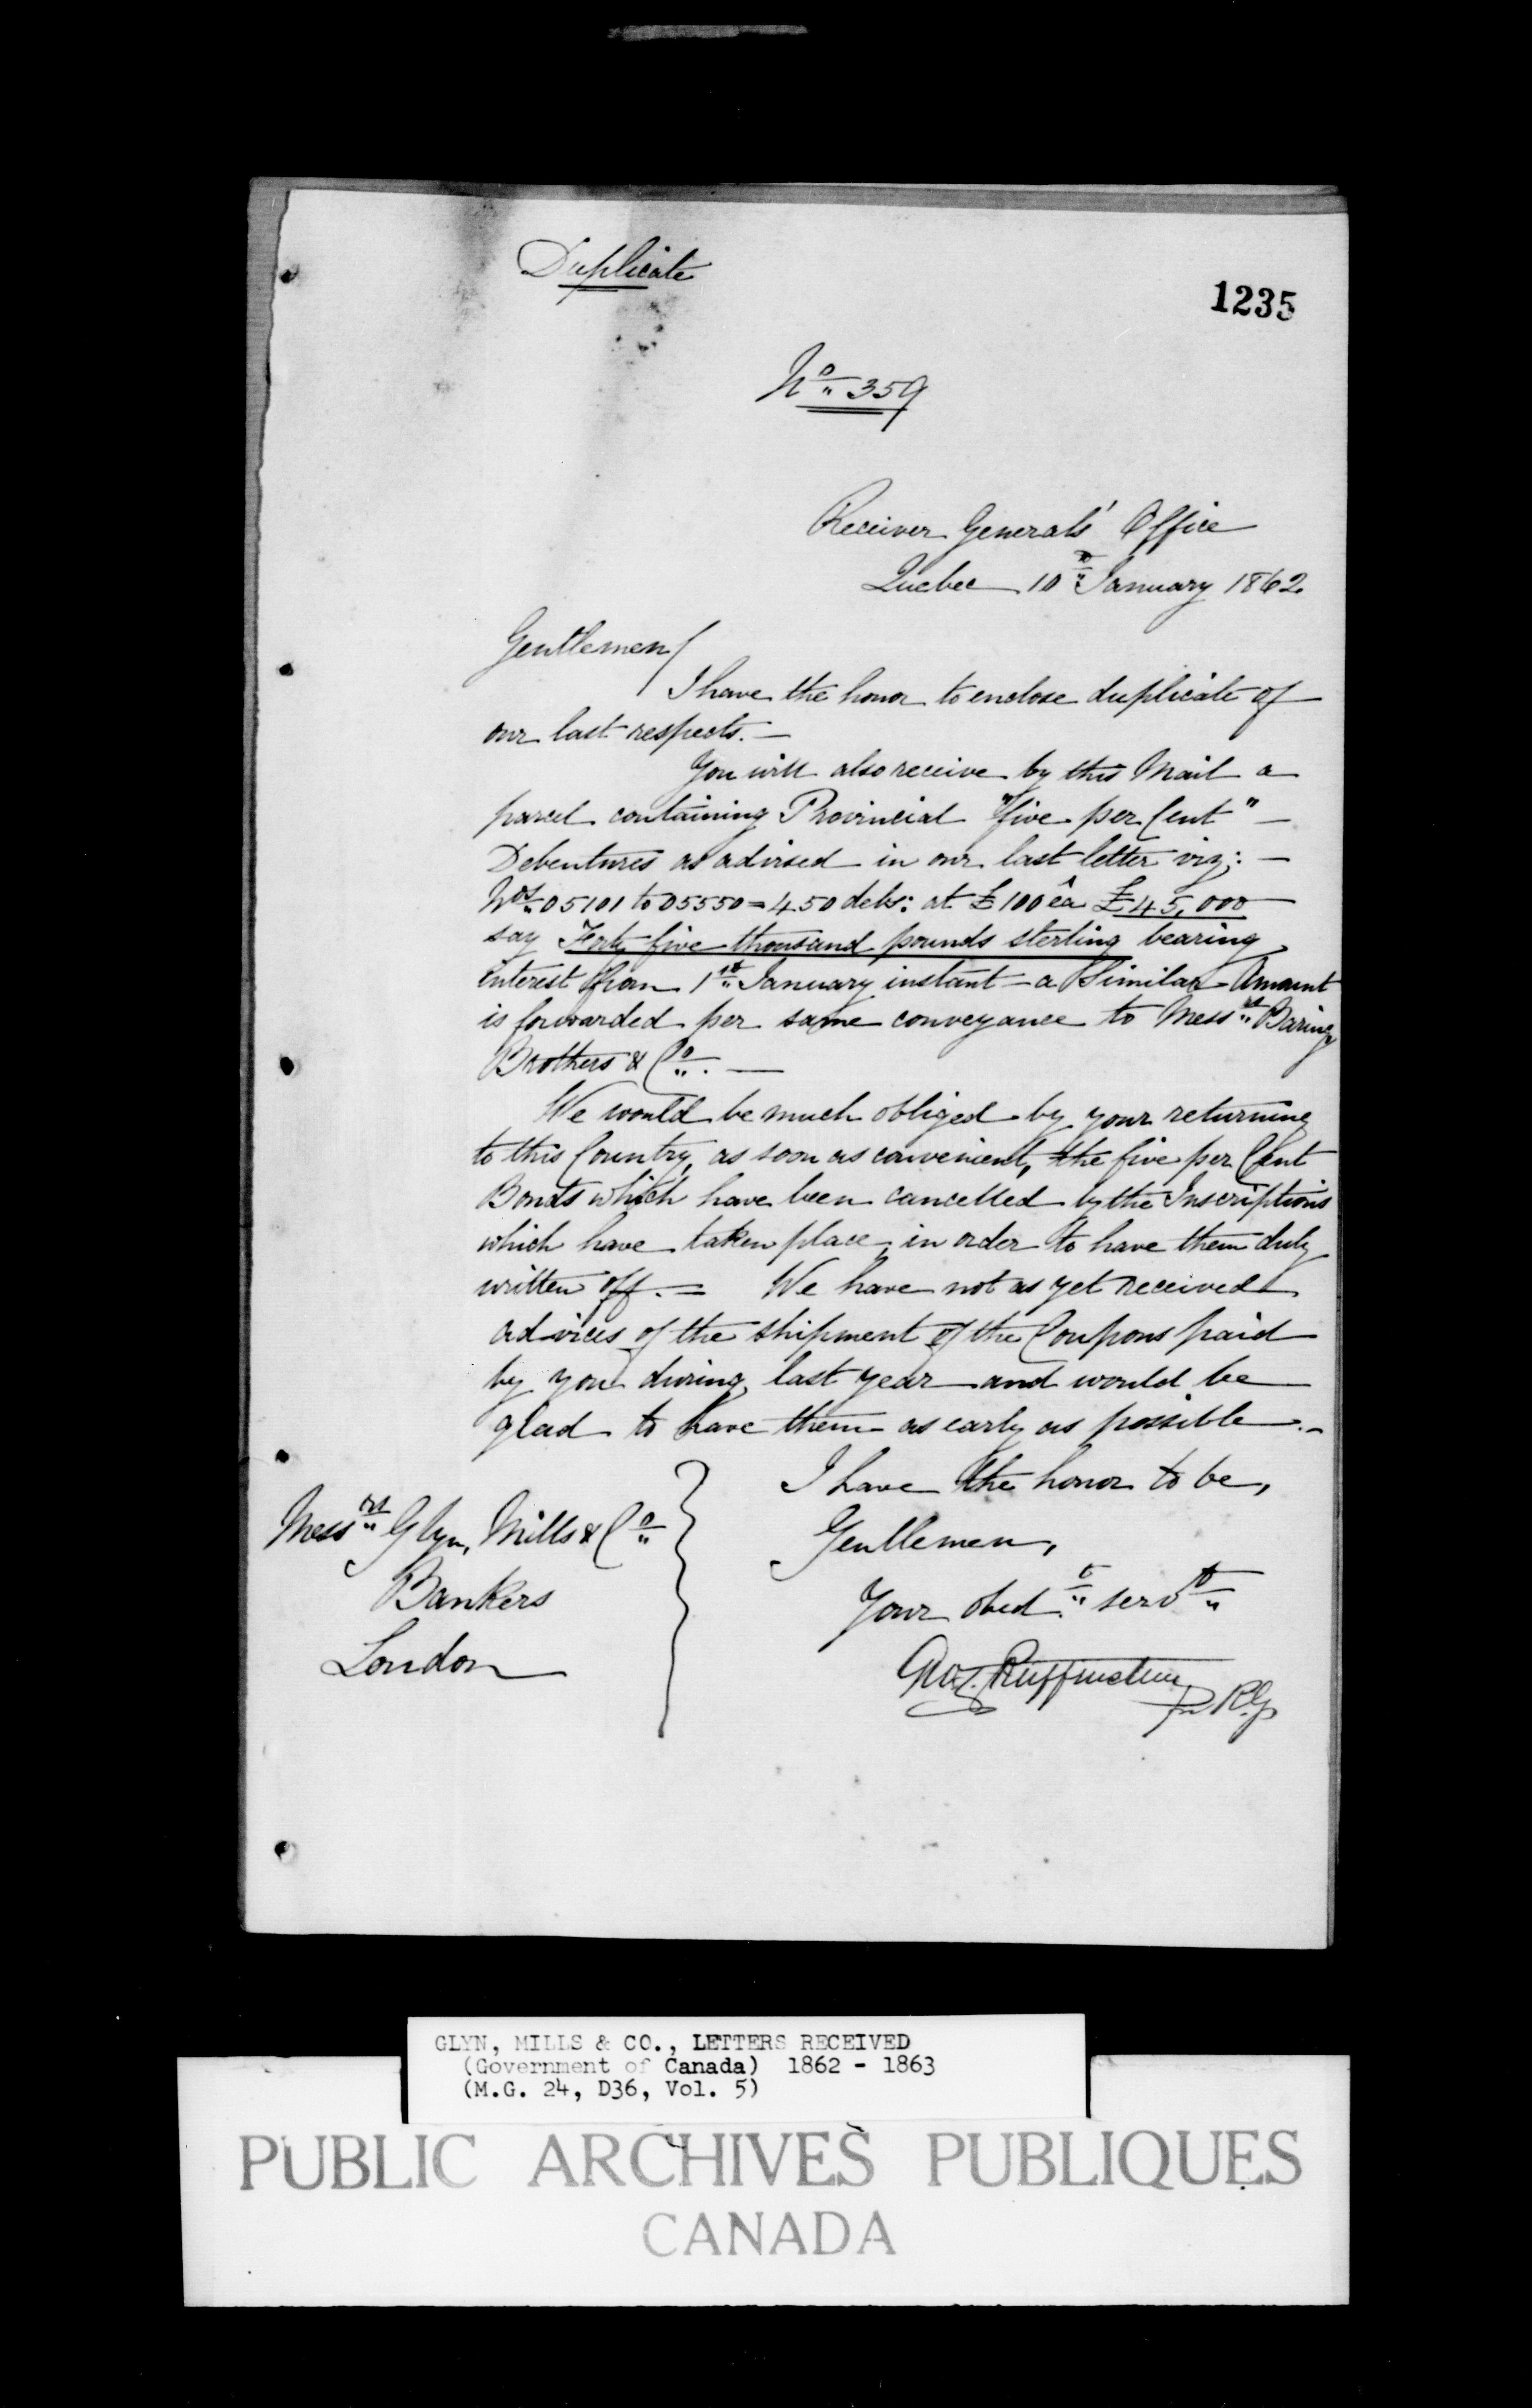 Duplicate
1235
No 359
Receiver Generals' Office
Quebec 10th January 1862
Gentlemen/
I have the honor to enclose duplicate of
our last respects. —
You will also receive by this Mail a
parcel containing Provincial "five per Cent" —
Debentures as advised in our last letter viz: —
Nos 05101 to 05550 = 450 debs: at £100 ea £45,000
say Forty five thousand pounds sterling bearing
interest from 1st January instant — a Similar Amount
is forwarded per same conveyance to Messrs Baring
Brothers & Co. —
We would be much obliged by your returning
to this Country, as soon as convenient, the five per Cent
Bonds which have been cancelled by the Inscriptions
which have taken place, in order to have them duly
written off. = We have not as yet received
advices of the shipment of the Coupons paid
by you during last year and would be
glad to have them as early as possible. —
I have the honor to be,
Gentlemen,
Your obedt servt
R.G.
Messrs Glyn, Mills & Co
Bankers
London
GLYN, MILLS & CO., LETTERS RECEIVED
(Government of Canada) 1862 - 1863
(M.G. 24, D36, Vol. 5)
PUBLIC ARCHIVES PUBLIQUES
CANADA